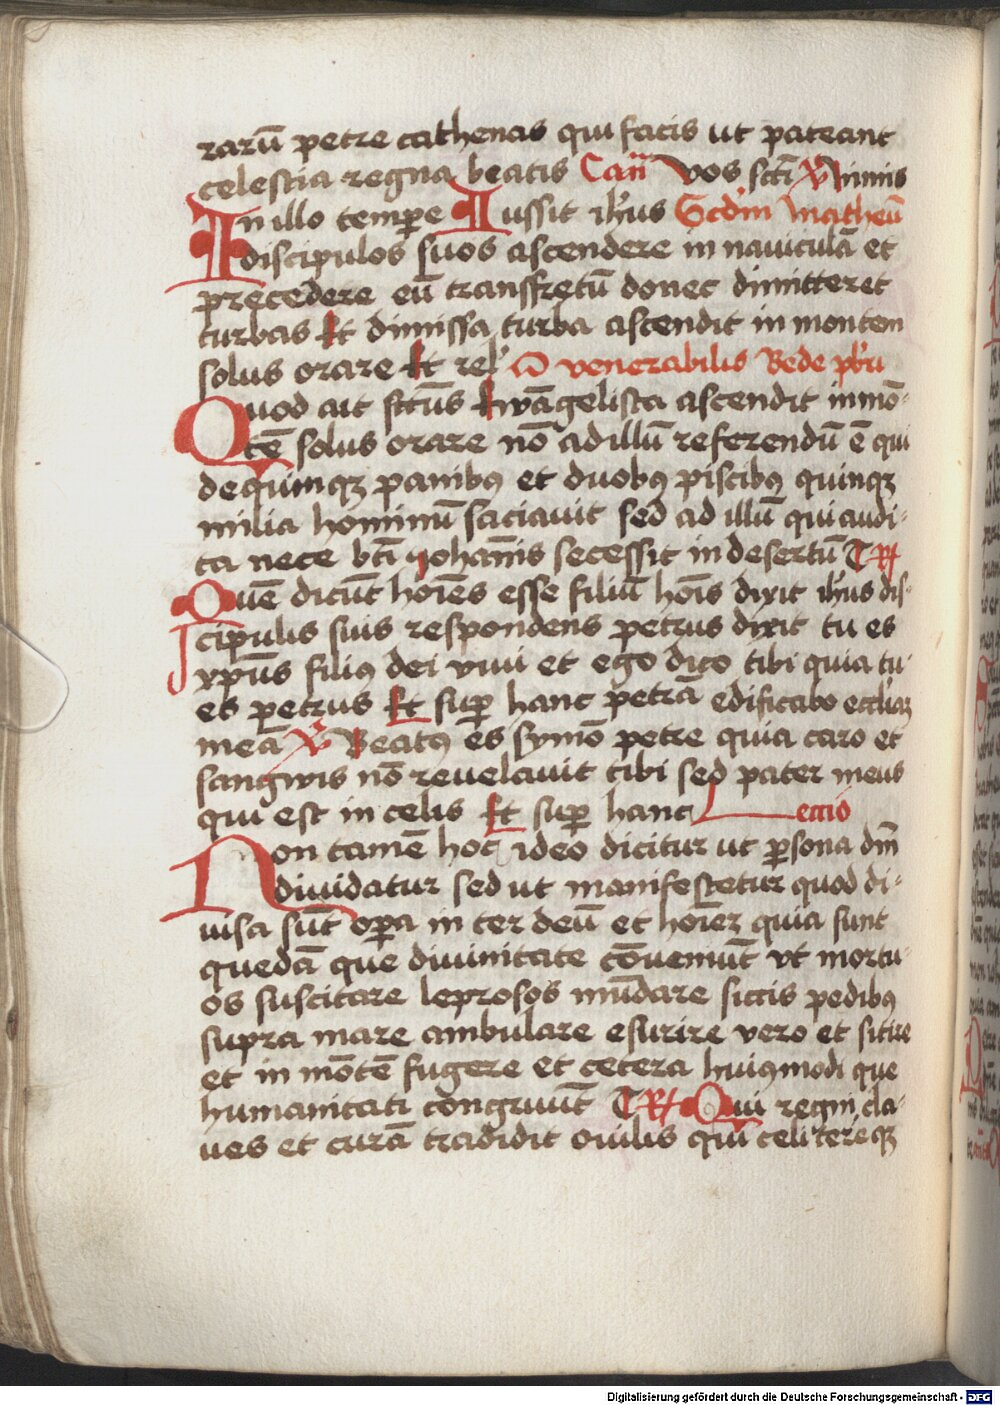 rarū petre cathenas qui facis ut pateant
celestia regna beatis Cañ vos scti ꝟ Nimis
In illo tempore Iussit ihus Scdm Matheū
discipulos suos ascendere in nauiculā et
precedere eū transfretū donec dimitteret
turbas Et dimissa turba ascendit in montem
solus orare Et rel' Om̄ venerabilis Bede pbri
Quod ait sctūs Ewāgelista ascendit in mō-
tē solus orare nō ad illū referendū ē qui
de quinqꝫ panibꝰ et duobꝰ piscibꝰ quinqꝫ
milia hominū saciauit sed ad illū qui audi-
ta nece bti Iohānis secessit in desertū T ℟
Quē dicūt hoīes esse filiū hoīs dixit ihus dis-
cipulis suis respondens petrus dixit tu es
xpūs filiꝰ dei viui et ego dico tibi quia tu
es petrus Et suꝑ hanc petrā edificabo eccliaꝫ
meā ꝟ Beatꝰ es symō petre quia caro et
sangwis nō reuelauit tibi sed pater meus
qui est in celis Et suꝑ hanc Lectio
Non tamē hoc ideo dicitur ut ꝑsona dm̄
diuidatur sed ut manifestetur quod di-
uisa sūt oꝑa in ter deū et hoīeꝫ quia sunt
quedā que diuinitate cōueniūt vt mortu-
os suscitare leprosos mūdare siccis pedibꝰ
supra mare ambulare esurire vero et sitire
et in mōtē fugere et cetera huiꝰmodi que
humanitati congruūt T ℟ Qui regni cla-
ues et curā tradidit ouilis qui celi tereqꝫ
Digitalisierung gefördert durch die Deutsche Forschungsgemeinschaft - DFG